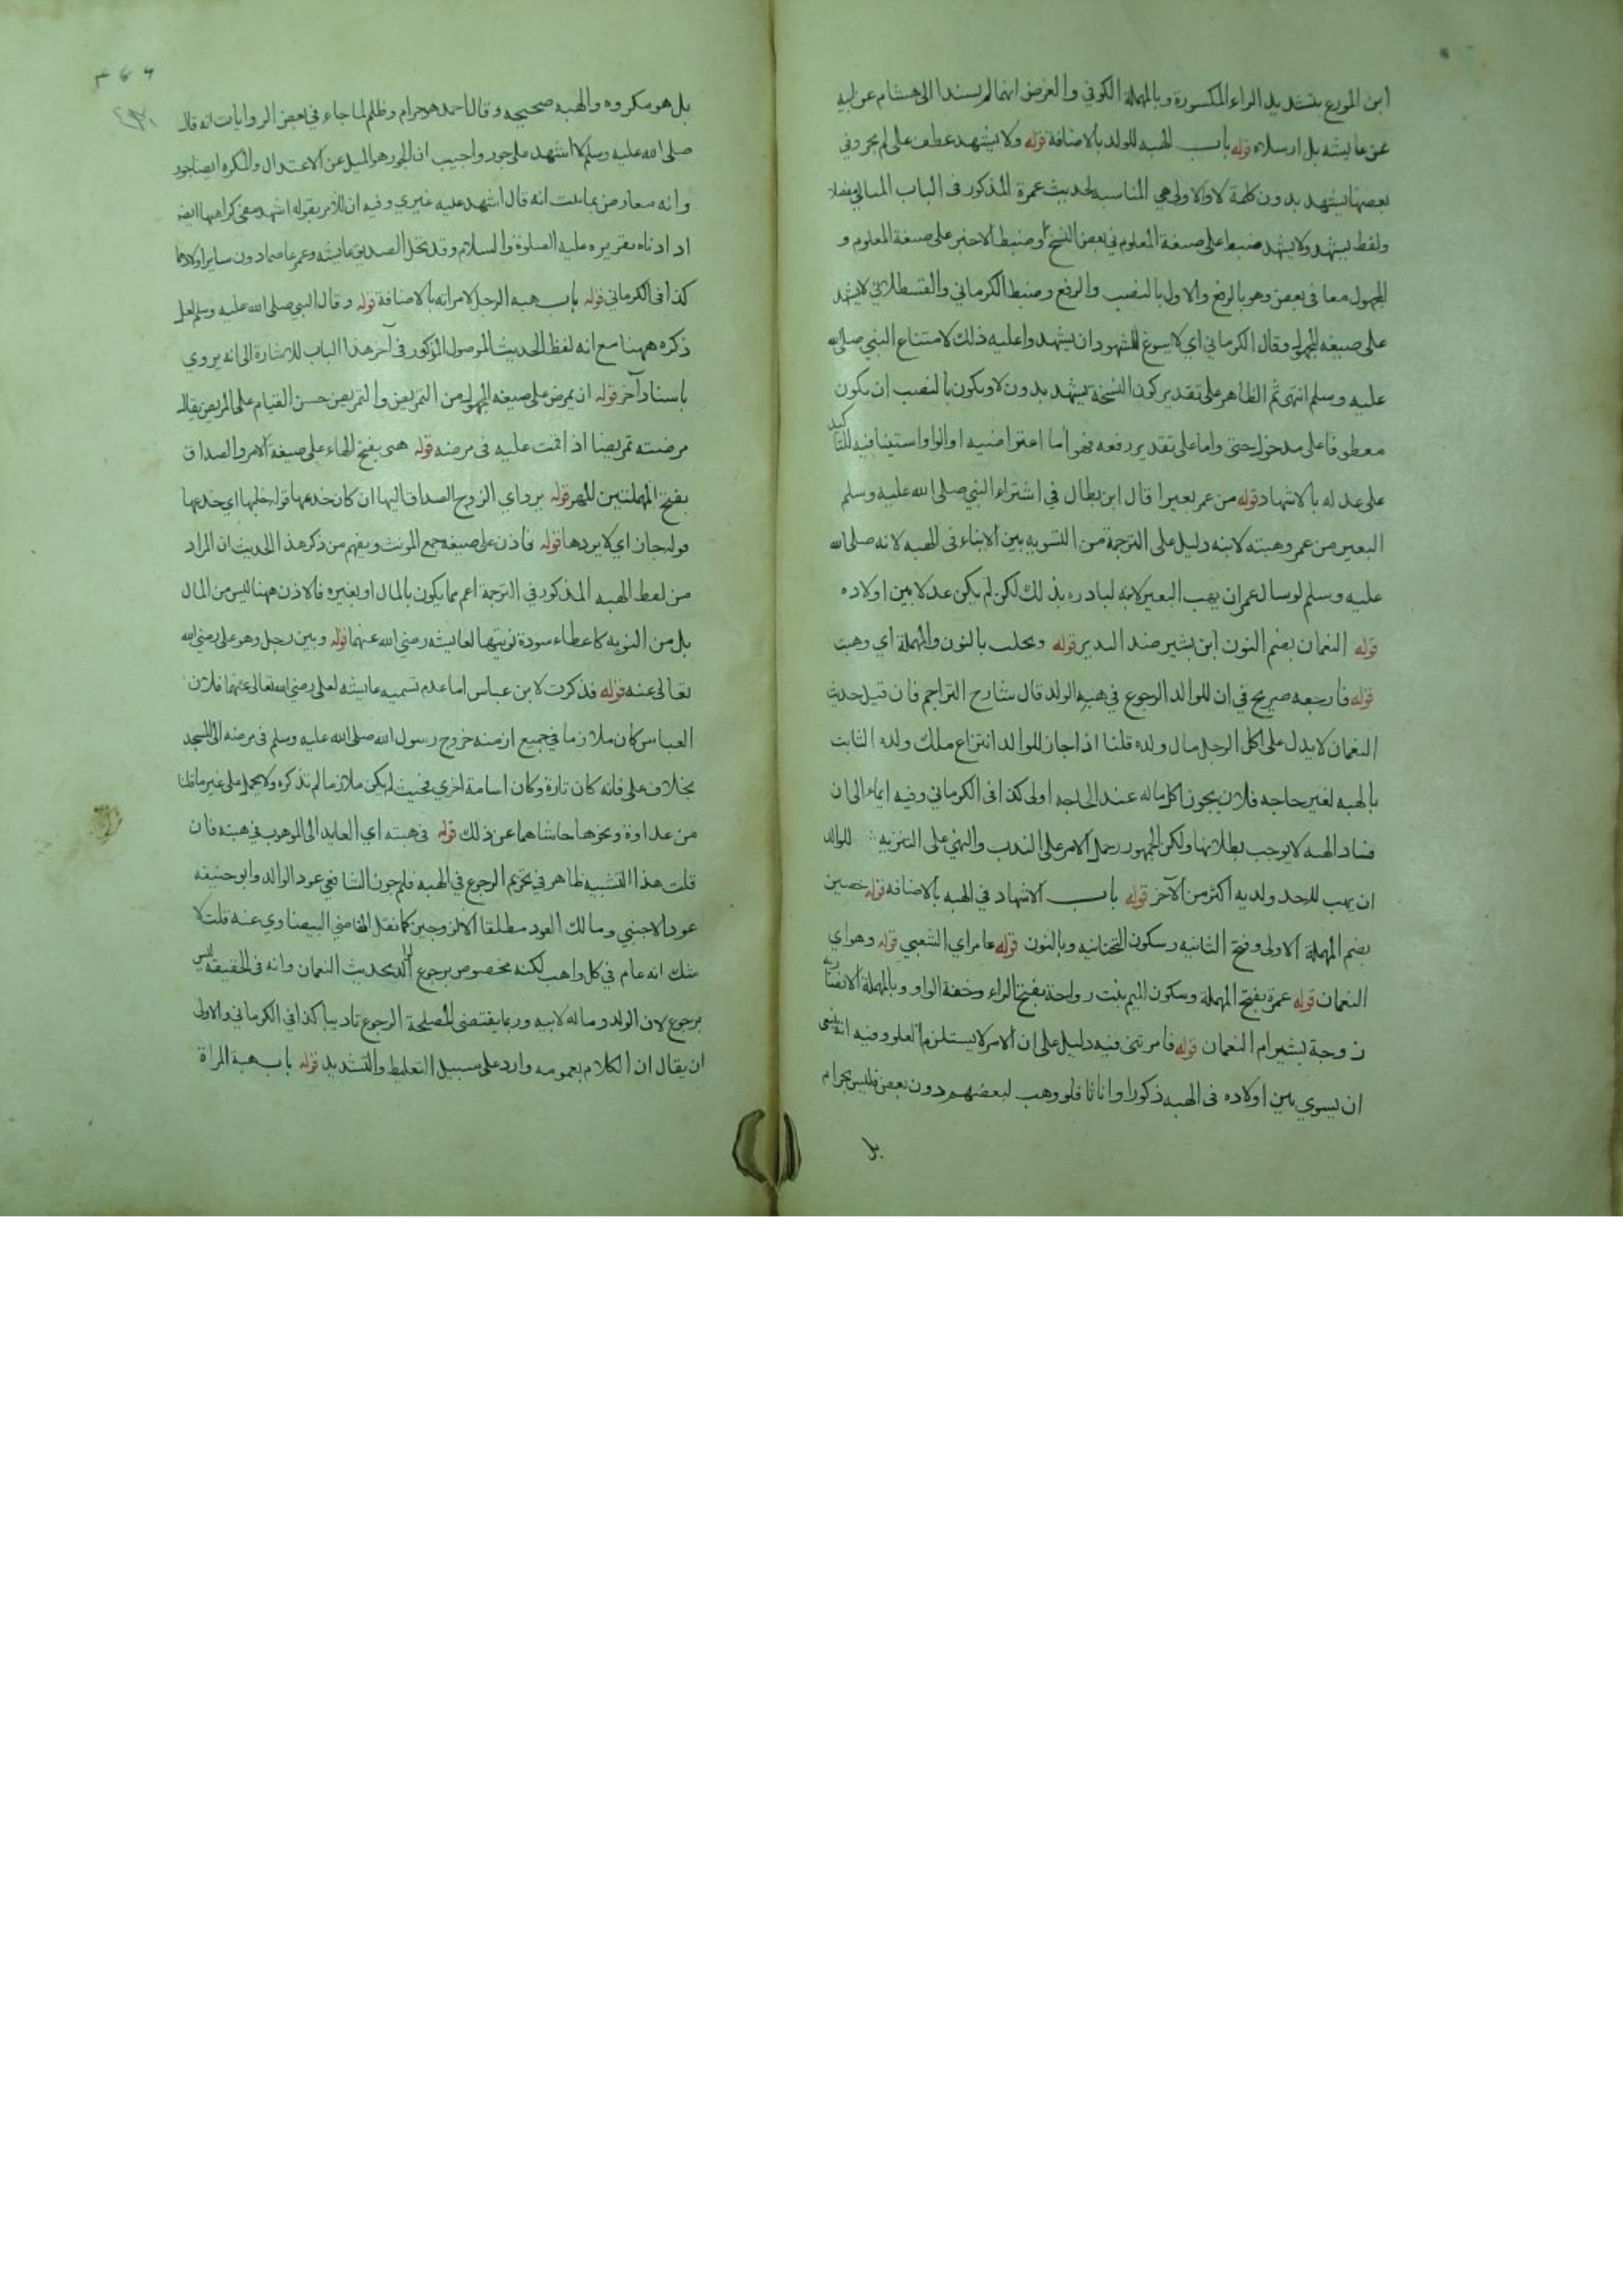 ابن المورع بتشديد الراء المكسورة وبالمهملة الكوفي والغرض انهما لم يسندا الى هشام عن ابيه
عن عايشه بل ارسلاه قوله باب الهبه للولد بالاضافة قوله ولا يشهد عطف على لم يجز وفي
بعضها يشهد بدون كلمة لا والاولى هي المناسبه لحديث عمرة المذكور في الباب
ولفظ يشهد ولا يشهد ضبطا على صيغة المعلوم في بعض النسخ وضبط الاخير على صيغة المعلوم و
المجهول معا في بعض وهو بالرفع والاول بالنصب والرفع وضبط الكرماني والقسطلاني لا يشهد
على صيغه المجهول وقال الكرماني اي لا يسوغ للشهود ان يشهدوا عليه ذلك لامتناع النبي صلى الله
عليه وسلم انتهى ثم الظاهر على تقدير كون النسخة يشهد بدون لا ويكون بالنصب ان يكون
معطوفا على مدخول حتى واما على تقدير رفعه فهو اما اعتراضيه او الواو استينافيه للتاكيد
على عدله بالاشهاد قوله من عمر بعيرا قال ابن بطال في اشتراء النبي صلى الله عليه وسلم
البعير من عمر وهبته لابنه دليل على الترجمة من التسويه بين الابناء في الهبه لانه صلى الله
عليه وسلم لو سال عمر ان يهب البعير لابنه لبادر به بذلك لكن لم يكن عدلا بين اولاده
قوله النعمان بضم النون ابن بشير ضد النذير قوله ونحلت بالنون والمهملة اي وهبت
قوله فارجعه صريح في ان للوالد الرجوع في هبه الولد قال شارح التراجم فان قيل حديث
النعمان لا يدل على اكل الرجل مال ولده قلنا اذا جاز للوالد انتزاع ملك ولده الثابت
بالهبه لغير حاجه فلان يجوز اكل ماله عند الحاجه اولى كذا في الكرماني وفيه ايماء الى ان
فساد الهبه لا يوجب بطلانها ولكن الجمهور حمل الامر على الندب والنهي على التنزيه للوالد
ان يهب لاحد ولديه اكثر من الآخر قوله باب الاشهاد في الهبه بالاضافه قوله حصين
بضم المهملة الاولى وفتح الثانيه وسكون التحتانيه وبالنون قوله عامر اي الشعبي قوله وهو اي
النعمان قوله عمرة بفتح المهملة وسكون الميم بنت رواحة بفتح الراء وخفة الواو وبالمهملة الانصارية
زوجة بشير ام النعمان قوله فامرتني فيه دليل على ان الامر لا يستلزم العلو وفيه انه ينبغي
ان يسوي بين اولاده في الهبه ذكورا واناثا فلو وهب لبعضهم دون بعض فليس بحرام
بل
بل هو مكروه والهبه صحيحه وقال احمد هو حرام وظلم لما جاء في بعض الروايات انه قال
صلى الله عليه وسلم لا اشهد على جور واجيب ان الجور هو الميل عن الاعتدال والمكره ايضا جور
وانه معارض بما ثبت انه قال اشهد عليه غيري وفيه ان للامر بقوله اشهد
كذا في الكرماني قوله باب هبه الرجل لامراته بالاضافة قوله وقال النبي صلى الله عليه وسلم لعل
ذكره ههنا مع انه لفظ الحديث الموصول المذكور في آخر هذا الباب للاشارة الى انه يروي
باسناد آخر قوله ان يمرض على صيغه المجهول من التمريض والتمريض حسن القيام على المريض يقال
مرضته تمريضا اذا قمت عليه في مرضه قوله هبى بفتح الهاء على صيغة الامر والصداق
بفتح المهملتين للمهر قوله يرد اي الزوج الصداق اليها ان كان خدعها قوله خلبها اي خدعها
قوله جاز اي لا يردها قوله فاذن على صيغه جمع المونث ويفهم من ذكر هذا الحديث ان المراد
من لفظ الهبه المذكور في الترجمة اعم مما يكون بالمال او بغيره فالاذن ههنا ليس من المال
بل من النوبه كاعطاء سودة نوبتها لعايشه رضي الله عنهما قوله وبين رجل وهو على رضي الله
تعالى عنه قوله فذكرت لابن عباس اما عدم تسميه عايشه لعلى رضي الله تعالى عنهما فلان
العباس كان ملازما في جميع ازمنه خروج رسول الله صلى الله عليه وسلم في مرضه الى المسجد
بخلاف على فانه كان تارة وكان اسامة اخري فحيث لم يكن ملازما لم تذكره ولا يحمل على غير ما قلنا
من عداوة ونحوها حاشاهما عن ذلك قوله في هبته اي العايد الى الموهوب في هبته فان
قلت هذا التشبيه ظاهر في تحريم الرجوع في الهبه فلم جوز الشافعي عود الوالد وابو حنيفه
عود الاجنبي ومالك العود مطلقا الا الزوجين كما نقل القاضي البيضاوي عنه قلت لا
شك انه عام في كل واهب لكنه مخصوص برجوع الوالد بحديث النعمان وانه في الحقيقه ليس
برجوع لان الولد وماله لابيه وربما يقتضى المصلحة الرجوع تاديبا كذا في الكرماني والاولى
ان يقال ان الكلام بعمومه وارد على سبيل التغليظ والتشديد قوله باب هبة المراة